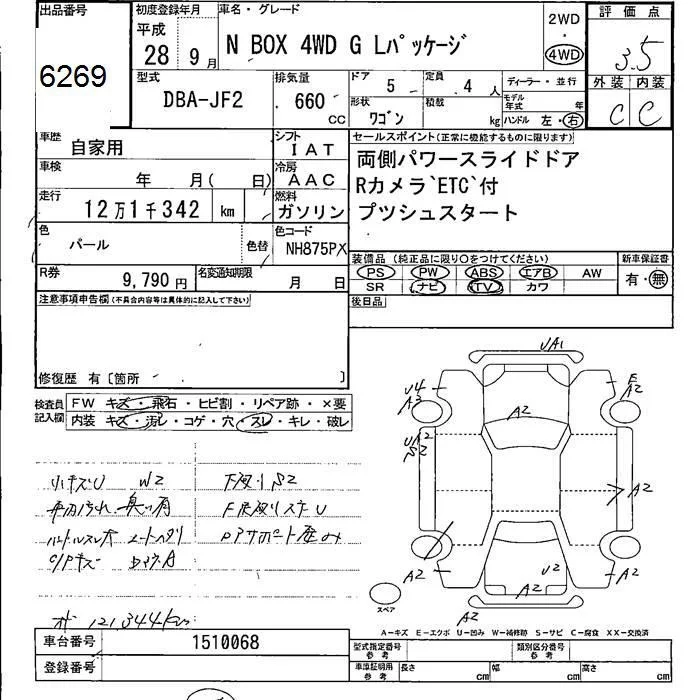 出品番号
6269
初度登録年月
平成
28 9月
車名・グレード
N BOX 4WD G Lパッケージ
2WD
・
4WD
評価点
3.5
外装 内装
C C
型式
DBA-JF2
排気量
660 cc
ドア 5
定員 4 人
ディーラー・並行
形状 ワゴン
積載 kg
モデル年式 年
ハンドル 左・右
車歴 自家用
シフト IAT
車検 年 月( 日)
冷房 AAC
走行 12万1千342 km
燃料 ガソリン
色 パール
色替
色コード NH875PX
R券 9,790円
名変通知期限 月 日
セールスポイント(正常に機能するものに限ります)
両側パワースライドドア
Rカメラ`ETC`付
プツシュスタート
装備品(純正品に限り○をつけてください)
PS PW ABS エアB AW
SR ナビ TV カワ
新車保証書
有・無
後日品
注意事項申告欄(不具合内容等は具体的に記入して下さい)
修復歴 有〔箇所 〕
検査員記入欄
FW キズ・飛石・ヒビ割・リペア跡・×要
内装 キズ・汚レ・コゲ・穴・スレ・キレ・破レ
小キズU W2
下廻りS2
オ 121,344km
UA1
U4
A3
E
A2
A2
UA2
S2
A2
A2
U2
A2
A2
A2
スペア
A-キズ E-エクボ U-凹み W-補修跡 S-サビ C-腐食 XX-交換済
車台番号 1510068
登録番号
型式指定番号 参考
類別区分番号 参考
車庫証明用 参考
長さ cm 幅 cm 高さ cm